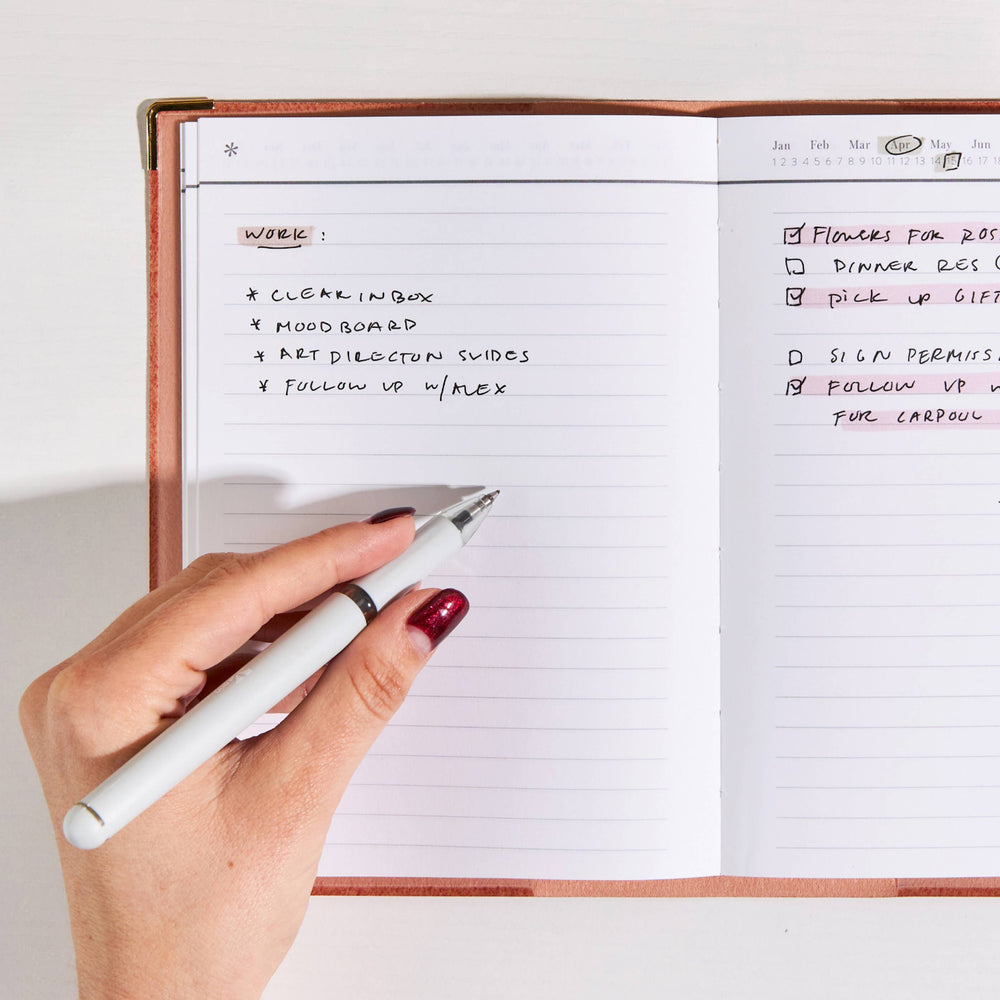 *
WORK :
* CLEAR INBOX
* MOODBOARD
* ART DIRECTON SLIDES
* FOLLOW UP W/ALEX
Jan Feb Mar Apr May Jun
1 2 3 4 5 6 7 8 9 10 11 12 13 14 15 16 17
FLOWERS FOR ROS
DINNER RES (
PICK UP GIFT
SIGN PERMISS
FOLLOW UP
FOR CARPOOL